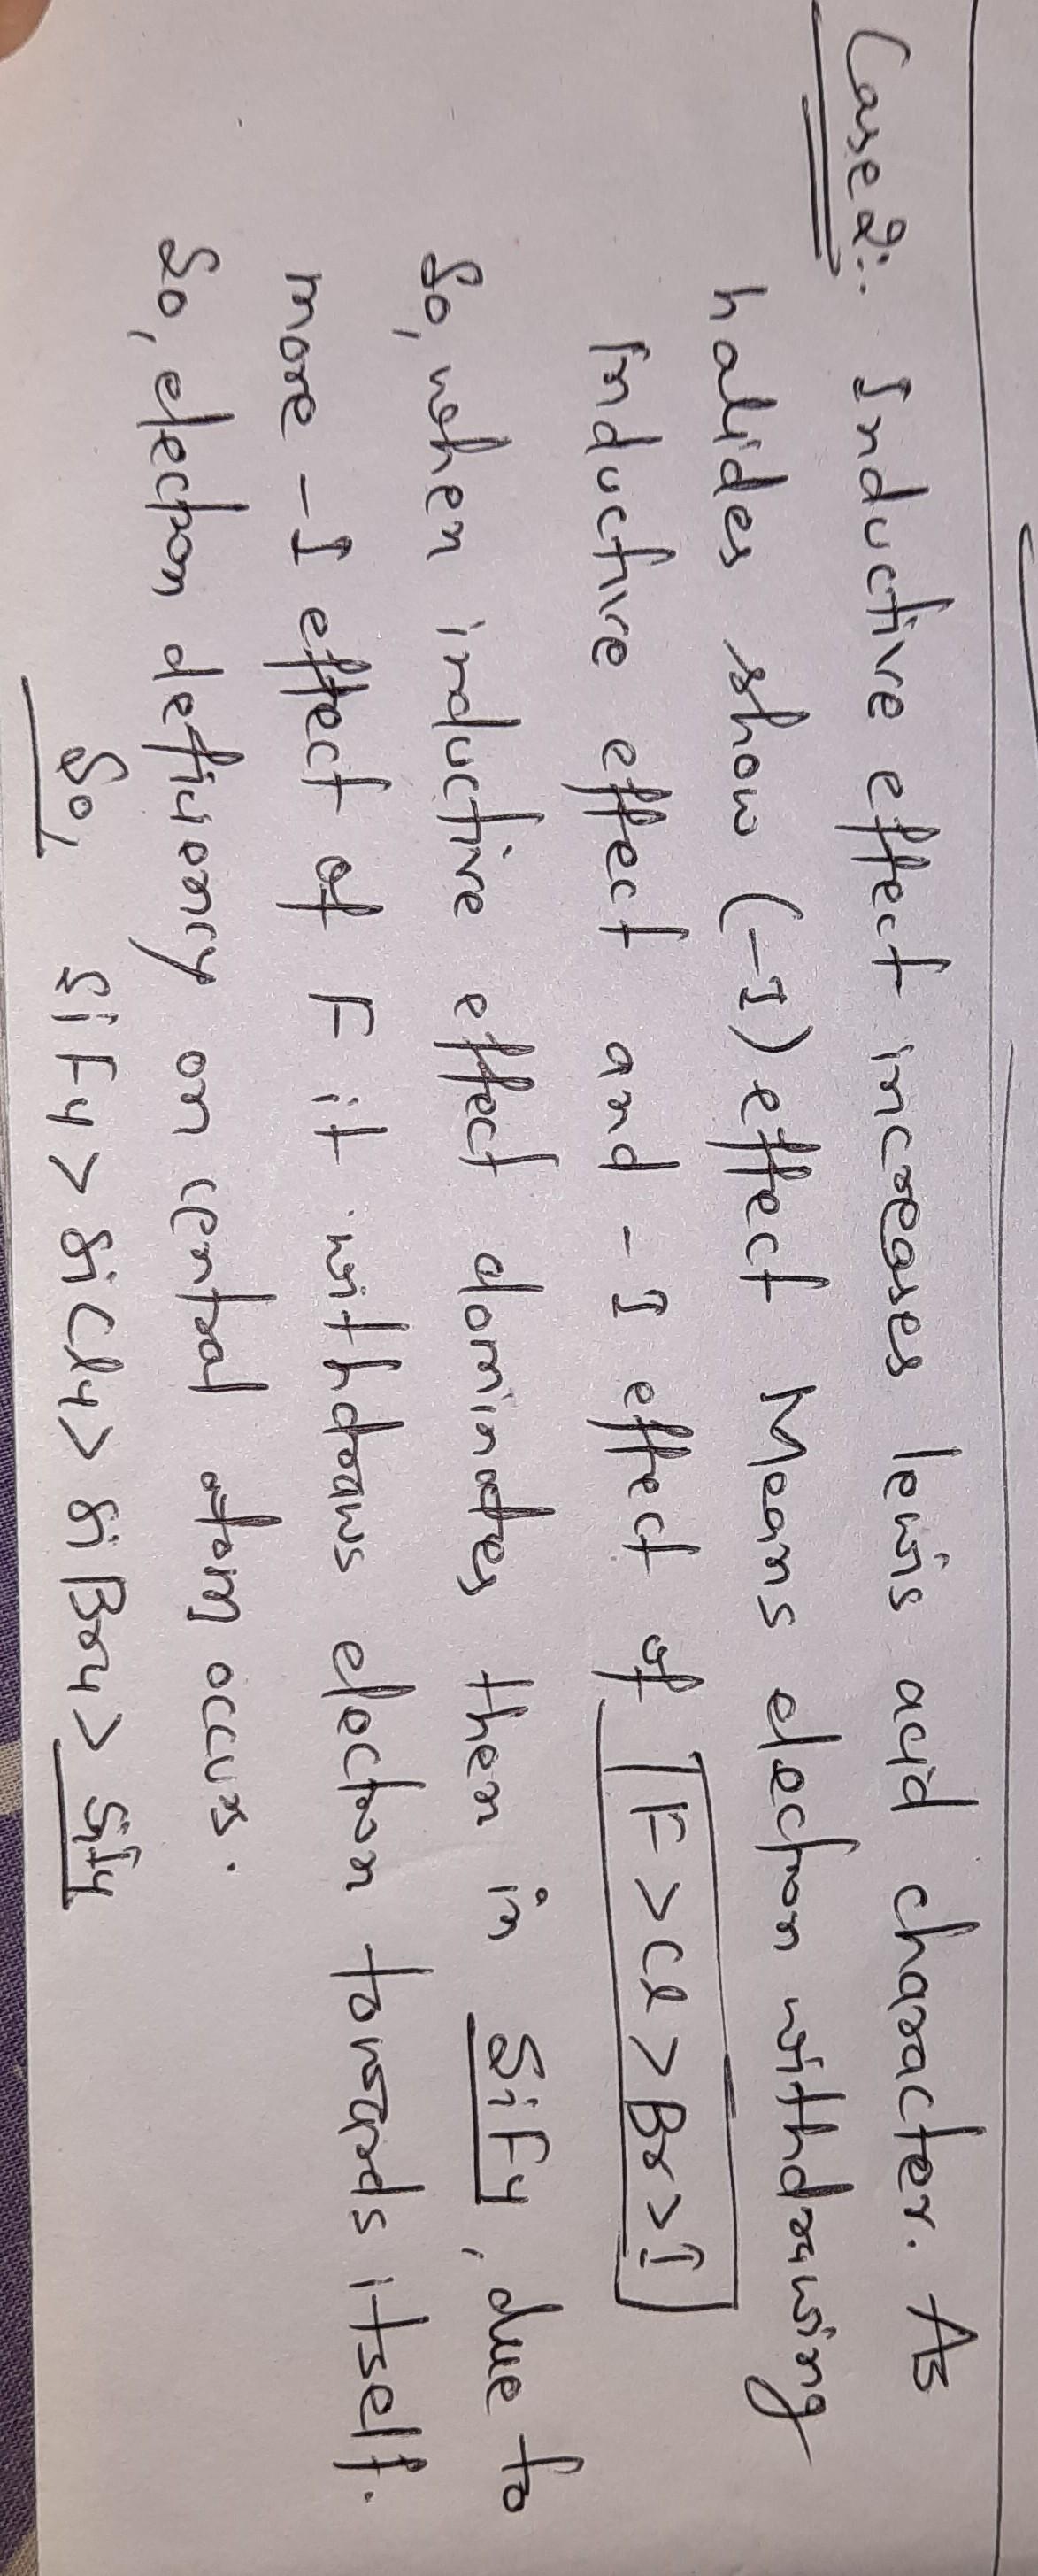 Case 2:- Inductive effect increases lewis acid character. As
halides show (-I) effect Means electron withdrawing
Inductive effect and -I effect of F > Cl > Br > I
So, when inductive effect dominates then in SiF4, due to
more -I effect of F it withdraws electron towards itself.
So, electron deficiency on central atom occurs.
So, SiF4 > SiCl4 > SiBr4 > SiI4